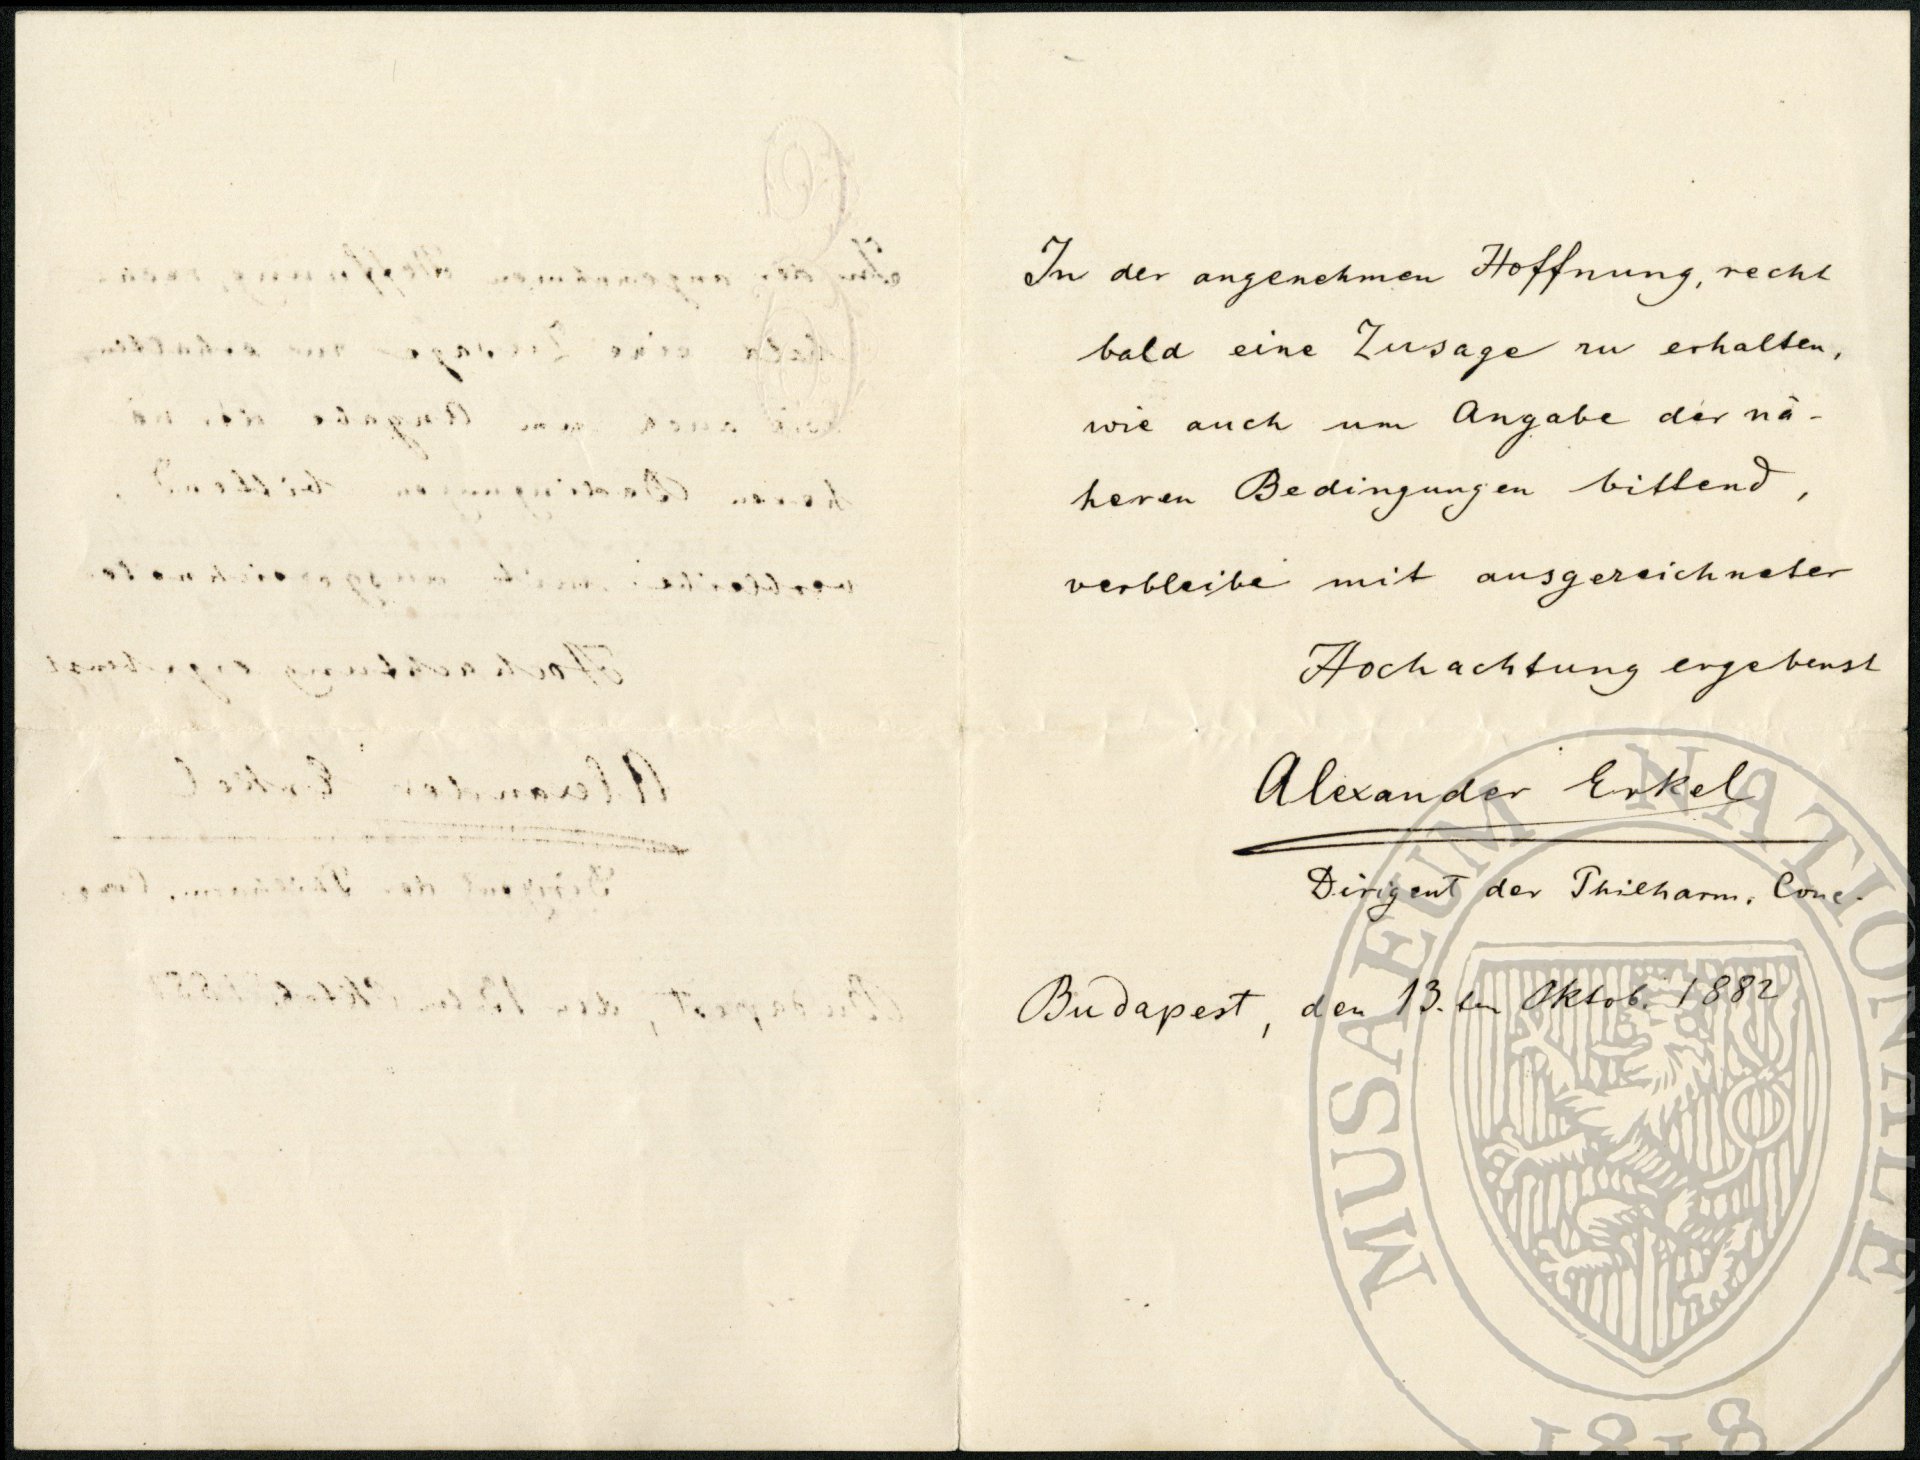 In der angenehmen Hoffnung, recht
bald eine Zusage zu erhalten,
wie auch um Angabe der nä-
heren Bedingungen bittend,
verbleibe mit ausgezeichneter
Hochachtung ergebenst
Alexander Erkel
Dirigent der Philharm. Conc.
Budapest, den 13.ten Oktob. 1882
MUSAEUM NATIONALE
1818